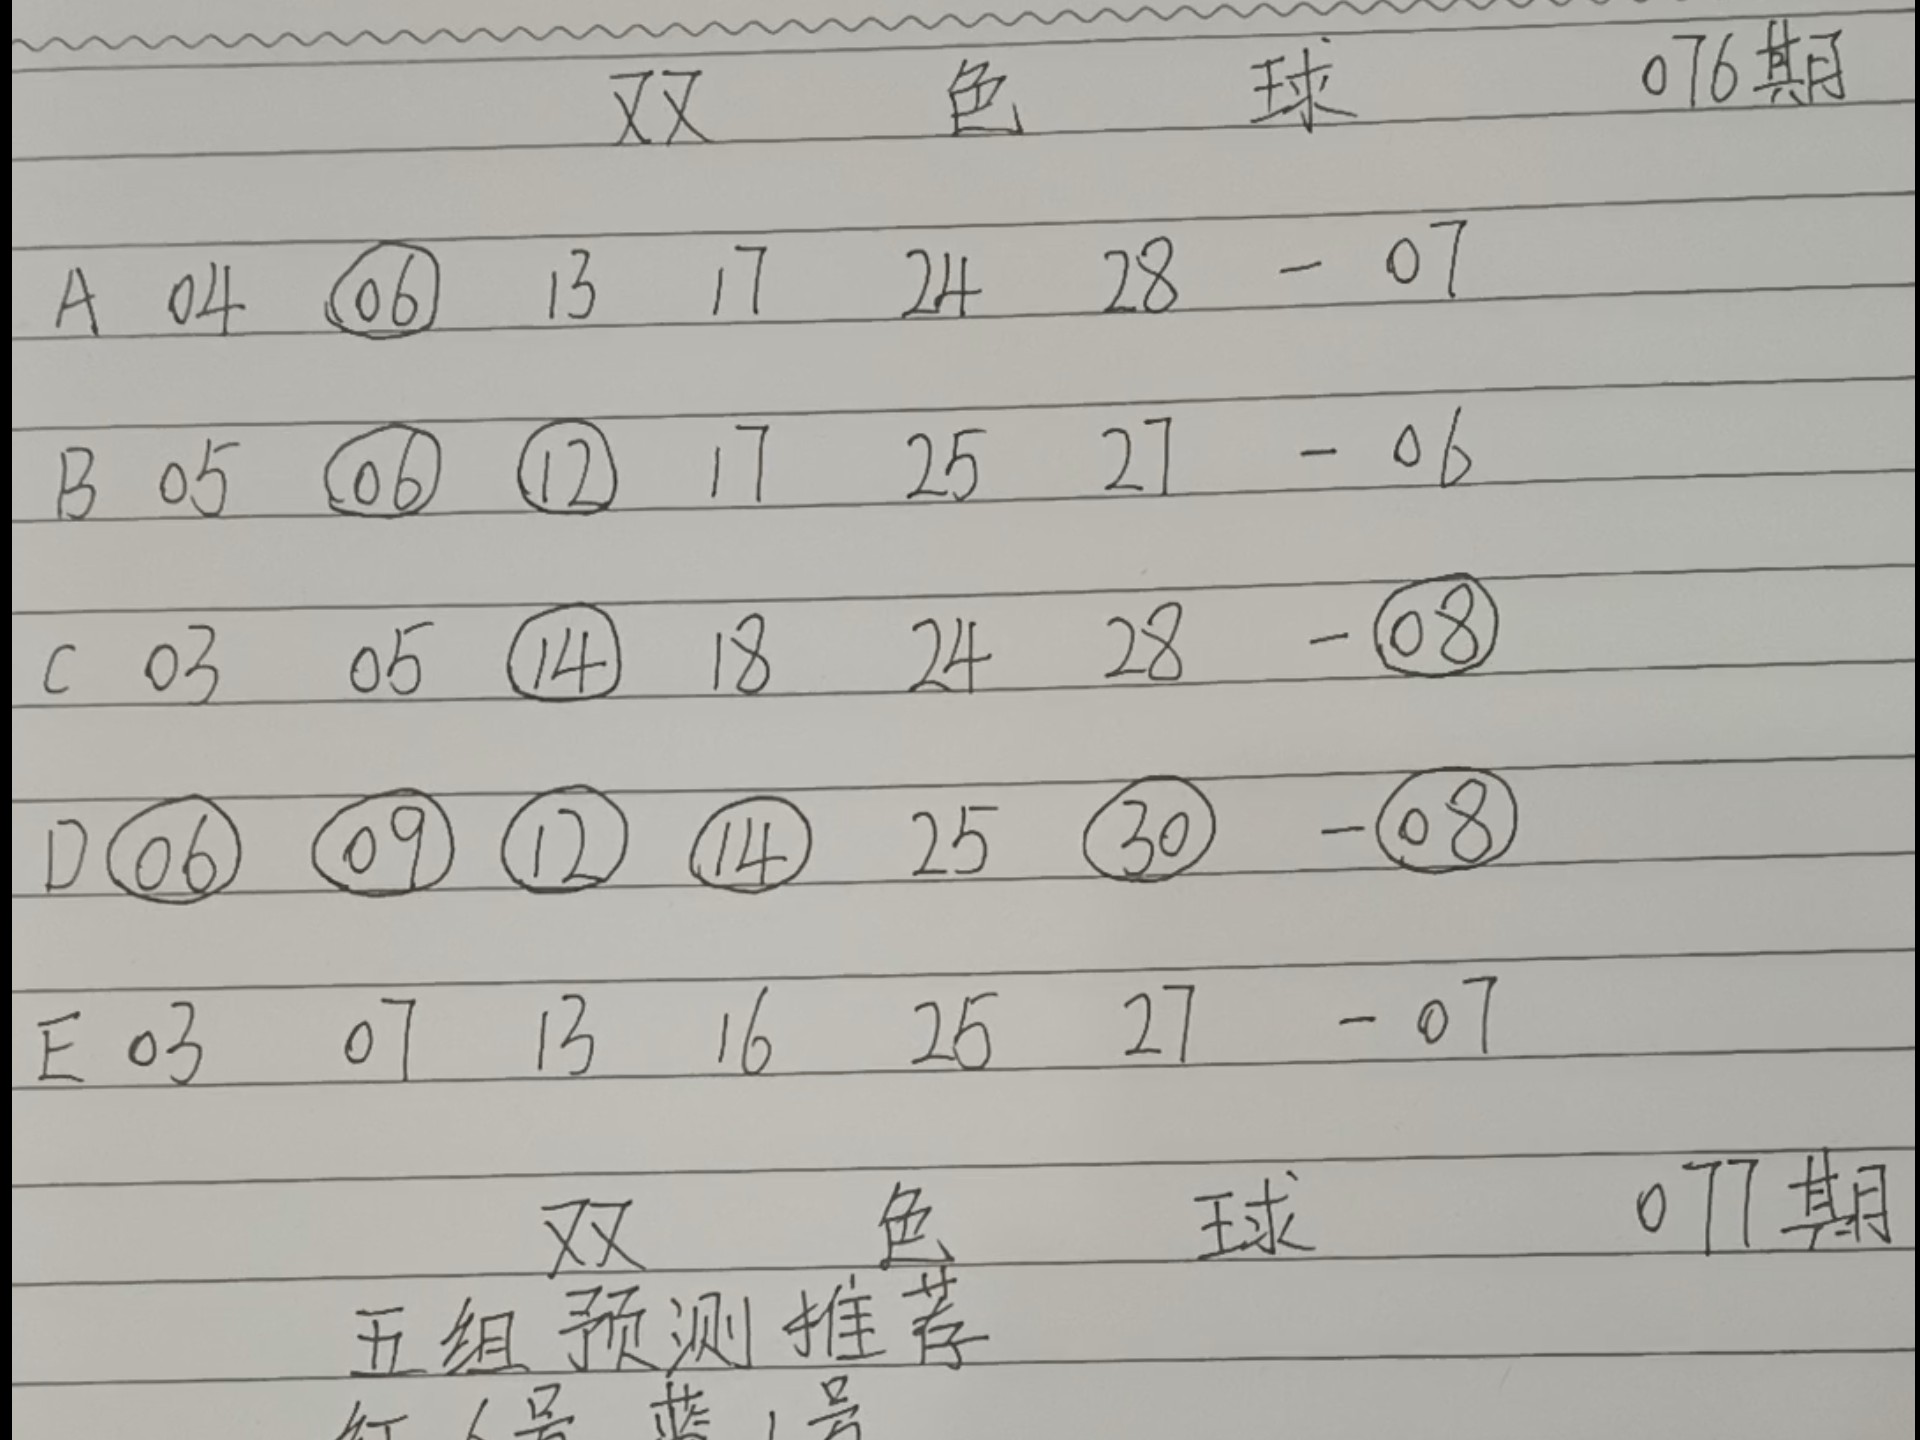 双色球 076期
A 04 06 13 17 24 28 - 07
B 05 06 12 17 25 27 - 06
C 03 05 14 18 24 28 - 08
D 06 09 12 14 25 30 - 08
E 03 07 13 16 25 27 - 07
双色球 077期
五组预测推荐
红6号蓝1号